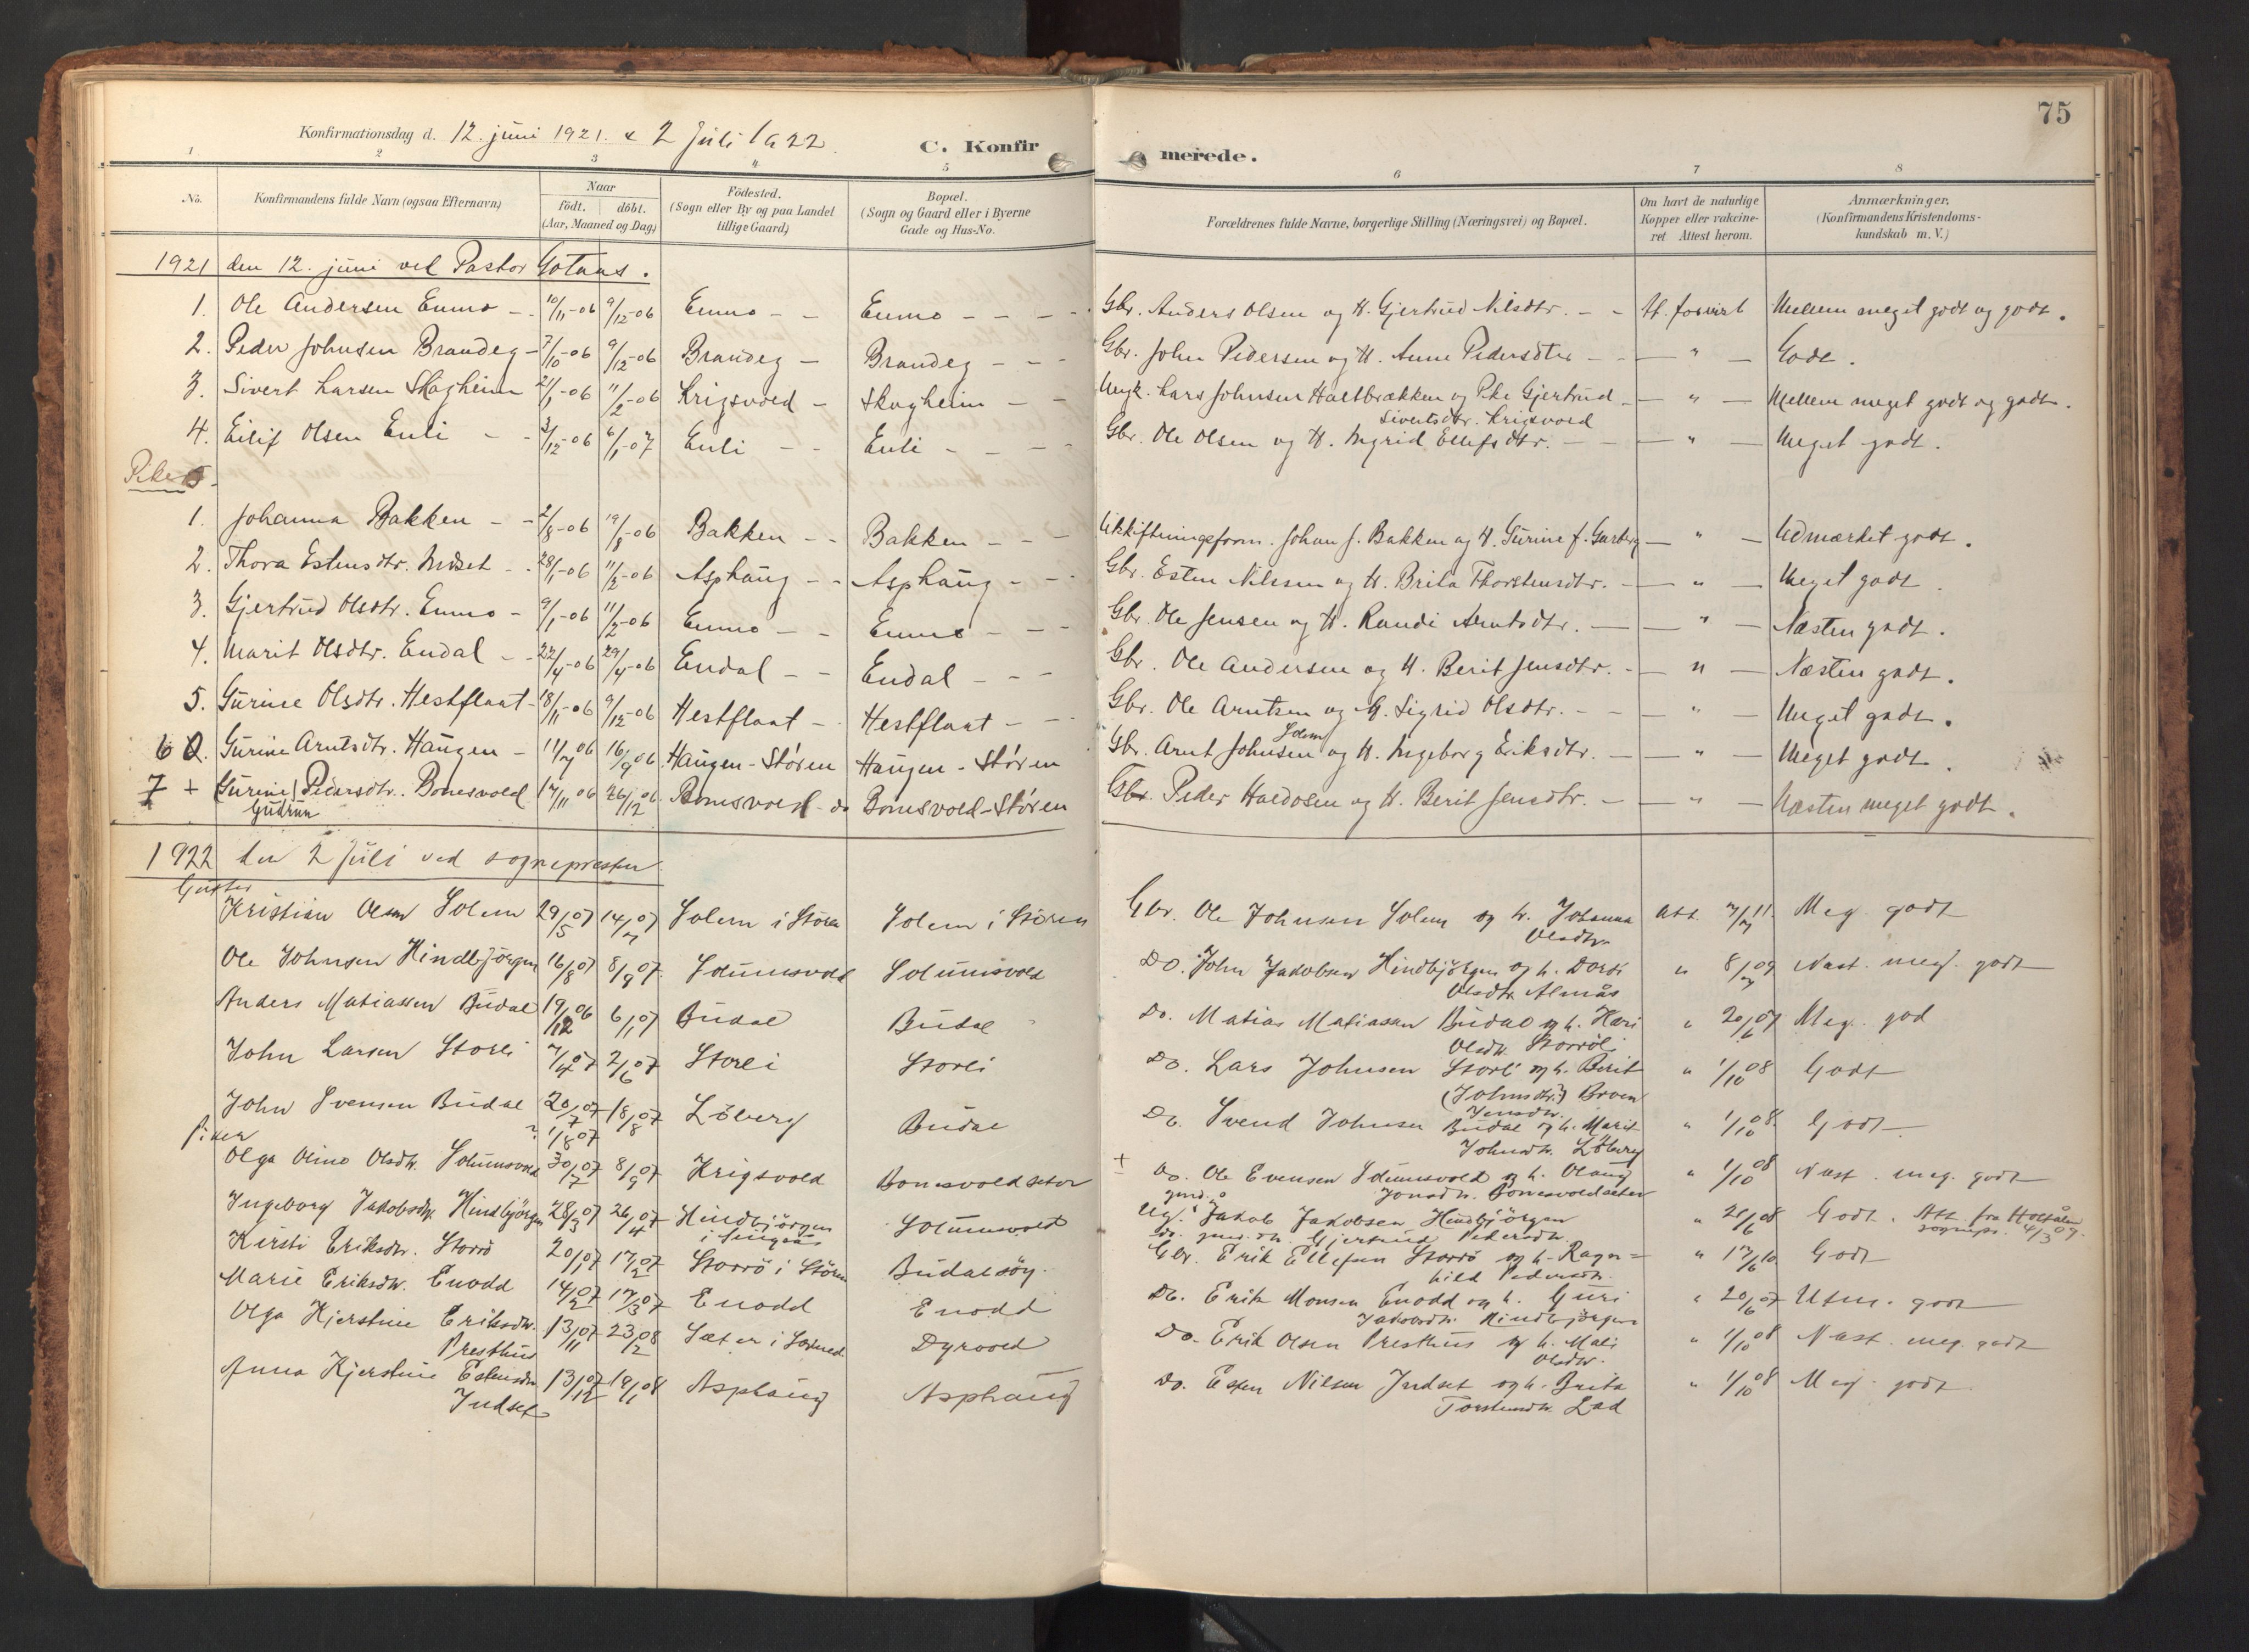 75
Konfirmationsdag d. 12. juni 1921. & 2 Juli 1922.
C. Konfirmerede.
1 2 3 4 5 6 7 8
No. Konfirmandens fulde Navn (ogsaa Efternavn) Naar födt. döbt. (Aar, Maaned og Dag) Födested. (Sogn eller By og paa Landet tillige Gaard) Bopæl. (Sogn og Gaard eller i Byerne Gade og Hus-No. Forældrenes fulde Navne, borgerlige Stilling (Næringsvei) og Bopæl. Om havt de naturlige Kopper eller vakcineret Attest herom. Anmærkninger, (Konfirmandens Kristendomskundskab m. V.)
1921 den 12. juni ved Pastor Gotaas.
1. Ole Andersen Enmo - 10/11-06 9/12-06 Enmo - - Enmo - - - Gbr. Anders Olsen og H. Gjertrud Nilsdtr. - - At. forevist Mellem meget godt og godt.
2. Peder Johnsen Brandeg - 7/10-06 9/12-06 Brandeg - Brandeg - - Gbr. John Pedersen og H. Anne Pedersdtr - - " - Godt.
3. Sivert Larsen Skogheim 2/1-06 11/2-06 Krigsvold - Skogheim - - Ungk. Lars Johnsen Haltbrækken og Pike Gjertrud - " - Mellem meget godt og godt.
Sivertsdtr. Krigsvold
4. Eilif Olsen Enli - - 3/12-06 6/1-07 Enli - - Enli - - - Gbr. Ole Olsen og H. Ingrid Ellefsdtr. - - " - Meget godt.
Piker
1. Johanna Bakken - - 2/8-06 19/8-06 Bakken - - Bakken - - - Utskiftningsform. Johan J. Bakken og H. Gurine f. Garberg - " - Udmærket godt.
2. Thora Estensdtr. Indset - - 28/1-06 11/2-06 Asphaug - - Asphaug - - Gbr. Esten Nilssen og H. Brita Thorstensdtr. - " - Meget godt.
3. Gjertrud Olsdtr. Enmo - 9/1-06 11/2-06 Enmo - - Enmo - - - Gbr. Ole Jensen og H. Randi Arntsdtr. - - " - Næsten godt.
4. Marit Olsdtr. Endal - - 22/4-06 29/4-06 Endal - - Endal - - - Gbr. Ole Andersen og H. Berit Jensdtr. - - " - Næsten godt.
5. Gurine Olsdtr. Hestflaat - 18/11-06 9/12-06 Hestflaat - Hestflaat - - Gbr. Ole Arntsen og H. Sigrid Olsdtr. - - " - Meget godt.
Solem
6 Gurine Arntsdtr. Haugen - 11/7 06 16/9 06 Haugen - Støren Haugen - Støren Gbr. Arnt Johnsen og H. Ingeborg Eriksdtr. - - " - Meget godt.
7 + Gurine Pedersdtr. Bonesvold 17/11 06 26/12 06 Bonesvold - do Bonesvold - Støren Gbr. Peder Haldosen og H. Berit Jensdtr. - - " - Næsten meget godt.
Gudrun
1922 den 2 Juli ved sognepresten
Gutter
Kristian Olsen Solem 29/5 07 14/7 07 Solem i Støren Solem i Støren Gbr. Ole Johnsen Solem og h. Johanna Att. 7/7 11. Meg. godt
Olsdtr
Ole Johnsen Hindbjörgen 16/8 07 8/9 07 Solumsvold Solumsvold Do. John Jakobsen Hindbjörgen og h. Dordi " 8/7 09 Næst. meg. godt
Olsdtr Almås
Anders Matiassen Budal 19/12 06 6/1 07 Budal Budal Do. Matias Matiassen Budal og h. Kari " 20/6 07 Meg. god
Olsdtr. Storröli
John Larsen Storli 7/4 07 2/6 07 Storli Storli Do. Lars Johnsen Storli og h. Berit " 1/10 08 Godt
(Johnsdtr?) Broen
Jensdtr.
John Svensen Budal 20/7 07 18/8 07 Löberg Budal Do. Svend Johnsen Budal og h. Marit " 1/10 08. Godt
? 1/8 07 Johnsdtr. Löberg
piker
Olga Oline Olsdtr. Solumsvold 30/7 07 8/9 07 Krigsvold Bonesvoldsetar + Do. Ole Evensen Solumsvold og h. Olaug " 1/10 08 Næst. meg. godt
Jonsdtr. Bonesvoldseter
Ingeborg Jakobsdtr. Hindbjörgen 28/3 07 26/4 07 Hindbjörgen i Singsås Solumsvold Ug. Jakob Jakobsen Hindbjörgen " 20/6 08 Godt. Att. fra Holtålen sognepr. 4/3 09.
Gjertrud Pedersdtr.
Kirsti Eriksdtr. Storrö 20/1 07 17/2 07 Storrö i Stören Budalsöy. Gbr. Erik Ellefsen Storrö og h. Ragn= " 17/6 10 Godt
hild Pedersdtr.
Marie Eriksdtr. Enodd 14/2 07 17/3 07 Enodd Enodd Do. Erik Monsen Enodd og h. Guri " 20/6 07 Utm. godt
Jakobsdtr. Hindbjörgen
Olga Kjerstine Eriksdtr. 13/11 07 23/2 08 Sæter i Dyrvold Do. Erik Olsen Presthus og h. Mali " 1/10 08 Næst. meg. godt
Presthus Olsdtr.
Anna Kjerstine Estensdtr 13/12 07 19/1 08 Asphaug Asphaug Do. Esten Nilsen Indset og h. Brita " 1/10 08 Meg. godt.
Indset Torstensdtr. Lad